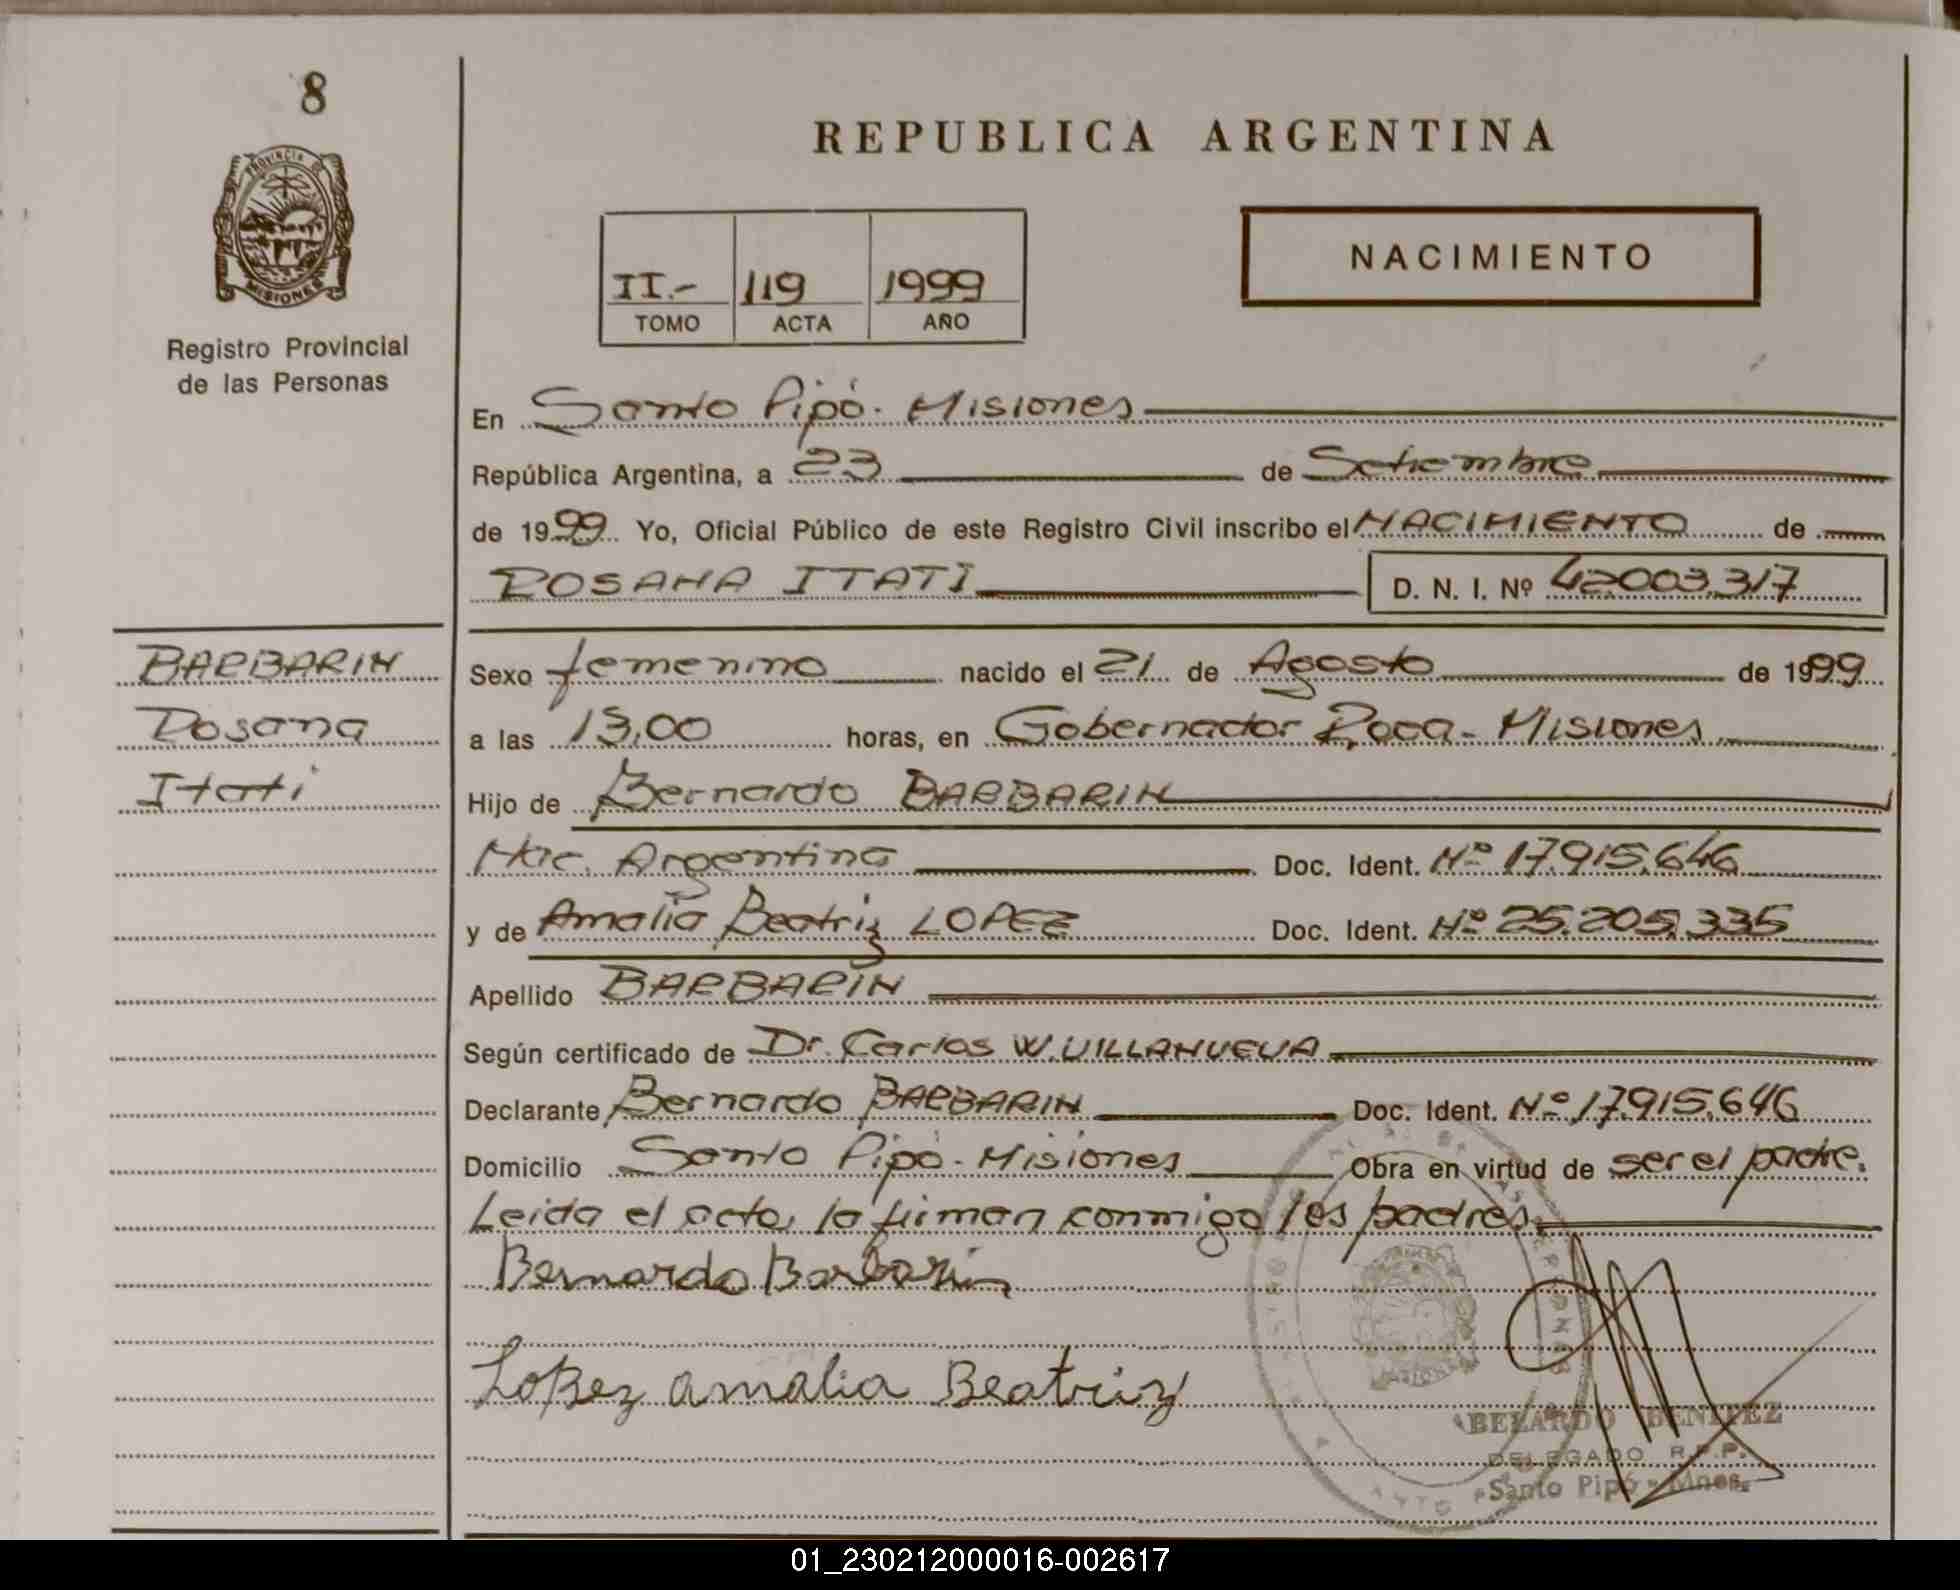 8
PROVINCIA DE
MISIONES
Registro Provincial
de las Personas
REPUBLICA ARGENTINA
II.- 119 1999
TOMO ACTA AÑO
NACIMIENTO
En Santo Pipó - Misiones
República Argentina, a 23 de Setiembre
de 1999 Yo, Oficial Público de este Registro Civil inscribo el NACIMIENTO de
ROSANA ITATI D. N. I. Nº 42.003.317
BARBARIN
Rosana
Itati
Sexo femenino nacido el 21 de Agosto de 1999
a las 13,00 horas, en Gobernador Roca - Misiones
Hijo de Bernardo BARBARIN
Nac. Argentina Doc. Ident. Nº 17.915.646
y de Amalia Beatriz LOPEZ Doc. Ident. Nº 25.205.335
Apellido BARBARIN
Según certificado de Dr. Carlos W. VILLANUEVA
Declarante Bernardo BARBARIN Doc. Ident. Nº 17.915.646
Domicilio Santo Pipó - Misiones Obra en virtud de ser el padre.
Leida el acta, la firman conmigo los padres
Bernardo Barbarin
Lopez Amalia Beatriz
BELARDO BENITEZ
DELEGADO R.P.P.
Santo Pipó - Mnes.
01_230212000016-002617